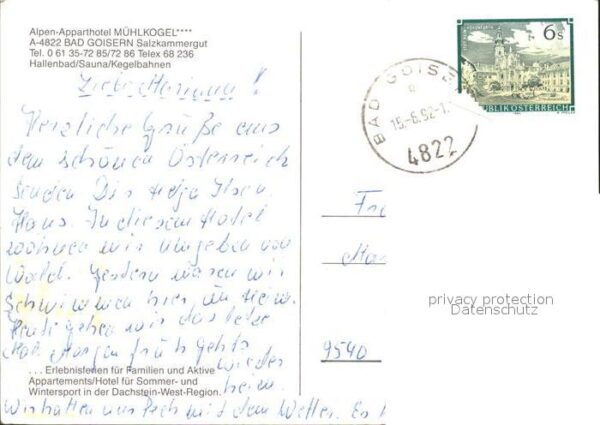 Alpen-Apparthotel MÜHLKOGEL****
A-4822 BAD GOISERN Salzkammergut
Tel. 0 61 35-72 85/72 86 Telex 68 236
Hallenbad/Sauna/Kegelbahnen
Liebe Marianne!
Herzliche Grüße aus
dem schönen Österreich
senden Dir Helga
Hans. In diesem Hotel
wohnen wir umgeben von
Wald. Gestern waren wir
Schwimmen hier im
Heute gehen wir das letzte
Mal. Morgen früh geht's
wieder
heim.
. . . Erlebnisferien für Familien und Aktive
Appartements/Hotel für Sommer- und
Wintersport in der Dachstein-West-Region.
Wir hatten uns Pech mit dem Wetter. Es
6 S
REPUBLIK ÖSTERREICH
BAD GOISE
15.-6.92-1
4822
9540
privacy protection
Datenschutz